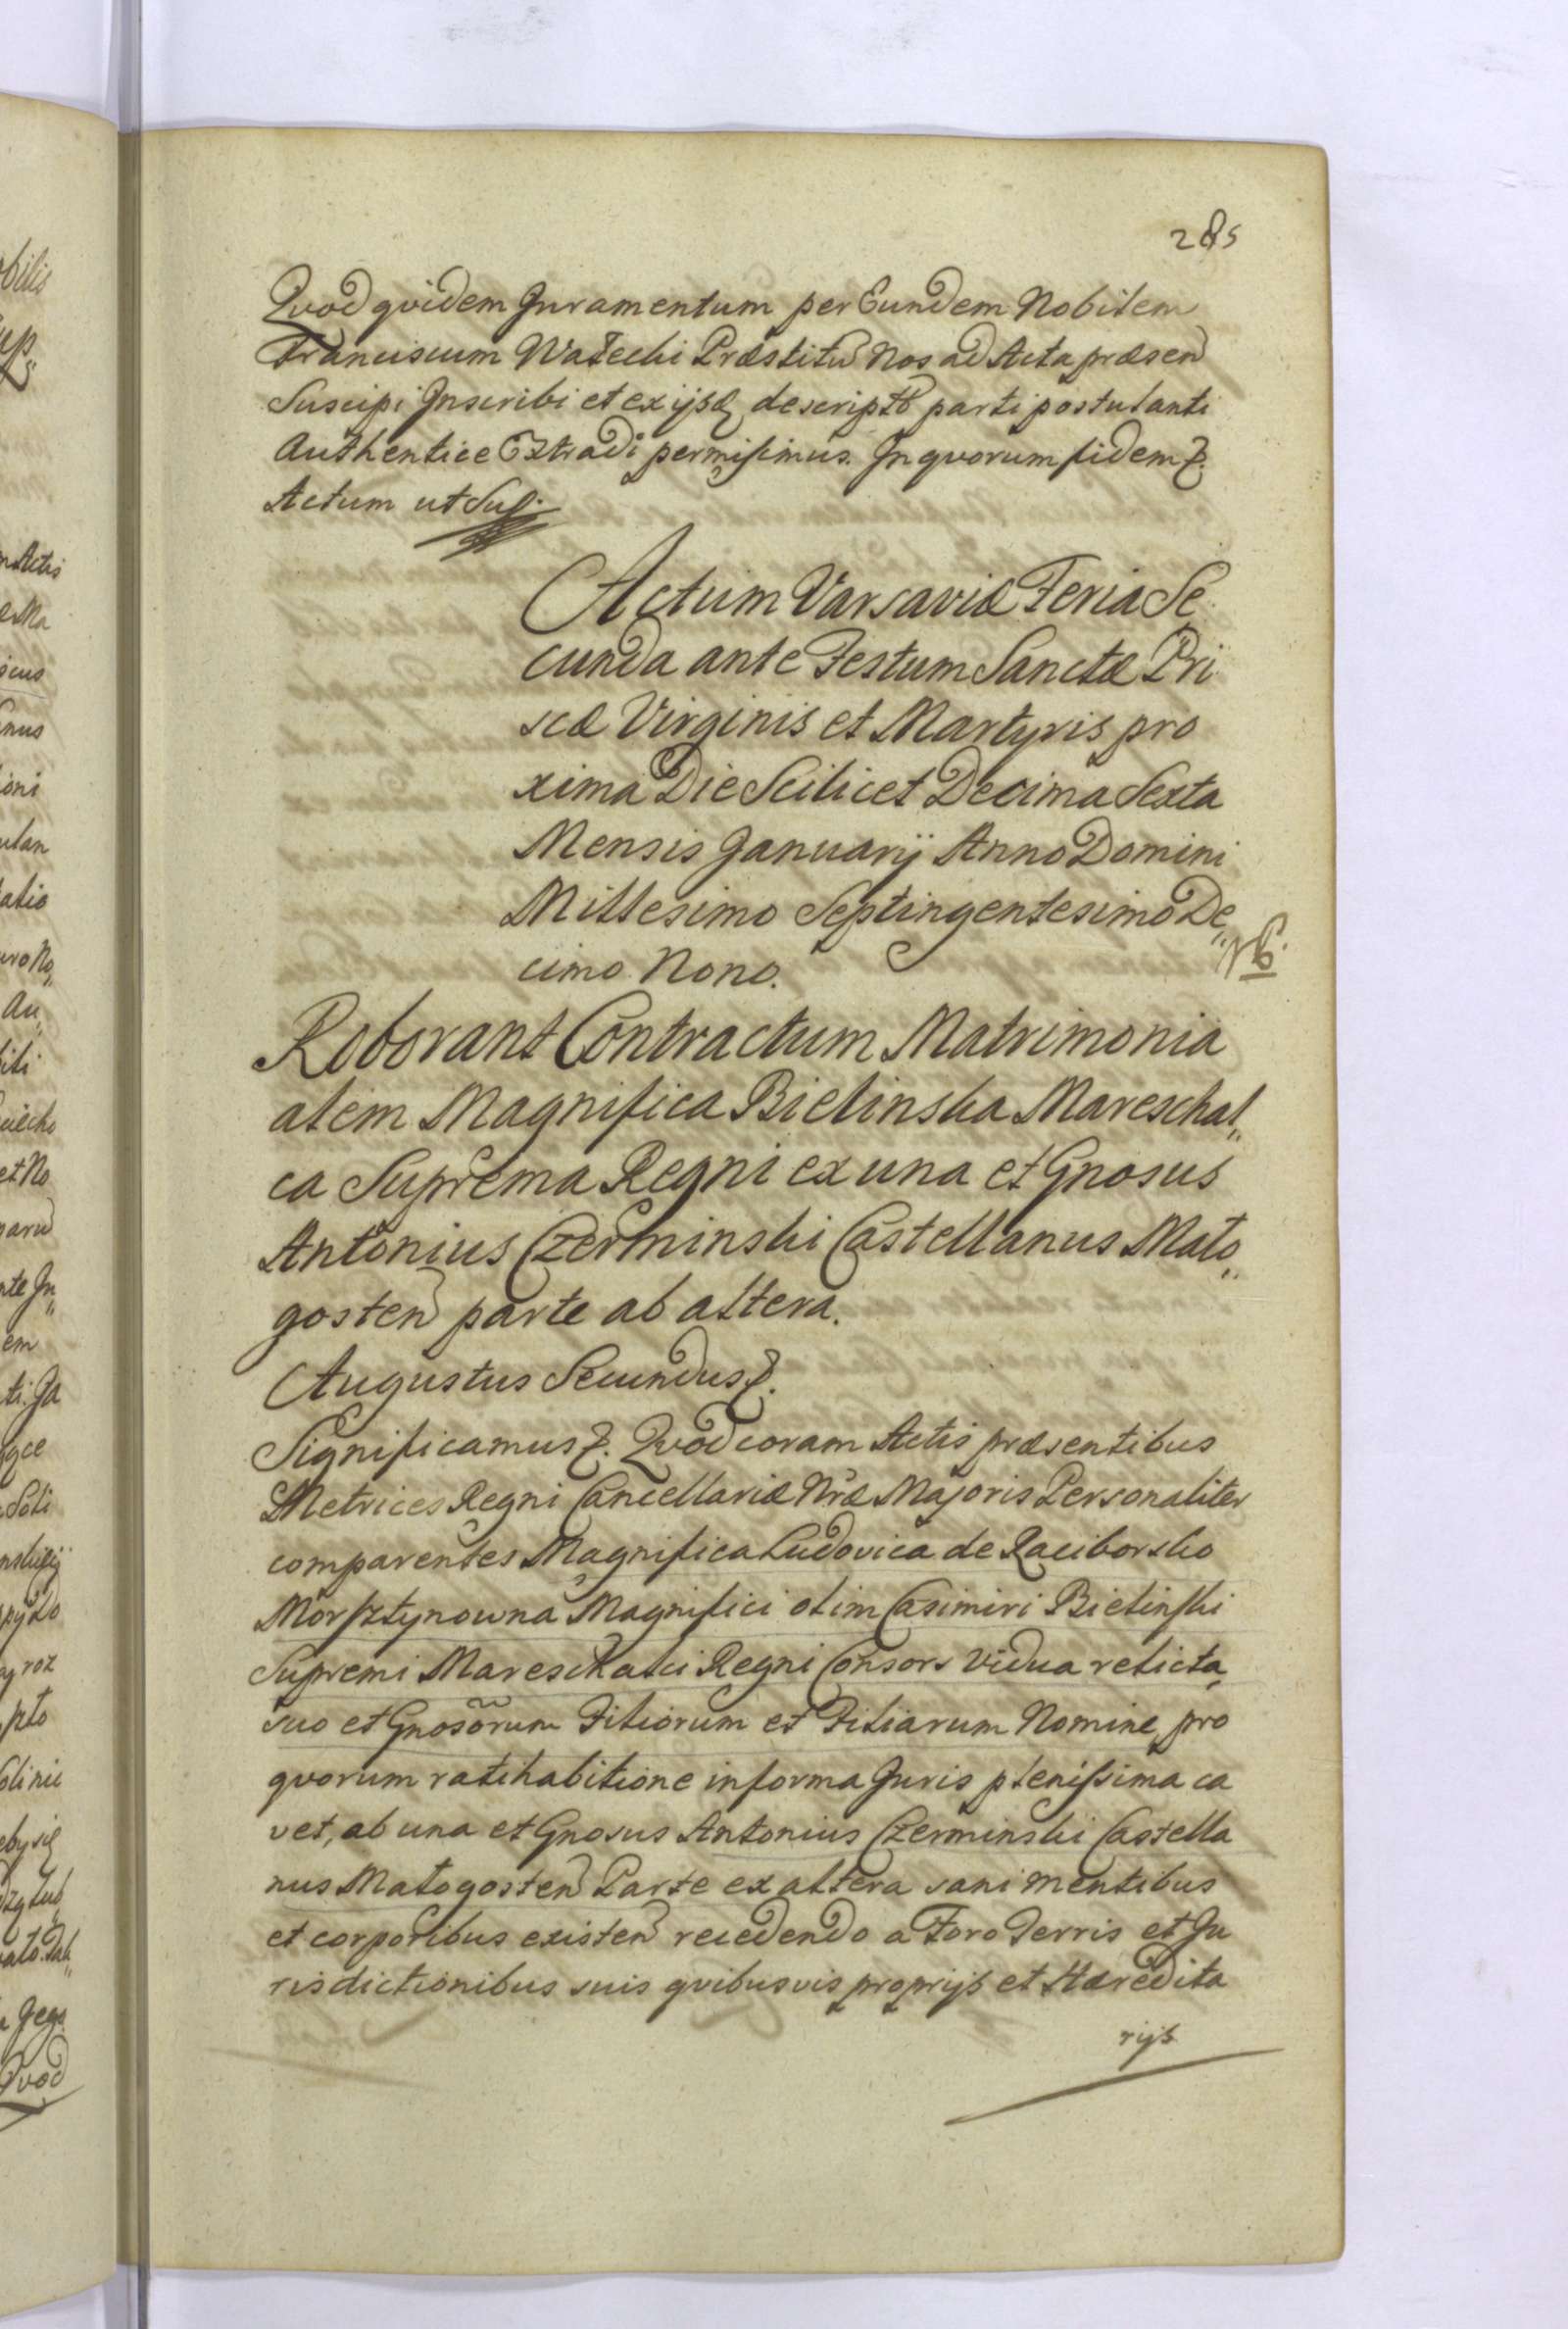 285
Quod quidem Juramentum per Eundem Nobilem
Franciscum Wałecki Præstitū Nos ad Acta præsen
Suscipi Inscribi et ex ijsq descriptū parti postulanti
Authentice Extradi permisimus. In quorum fidem &.
Actum ut Sup.
Actum Varsaviæ Feria Se
cunda ante Festum Sanctæ Pri
scæ Virginis et Martyris pro
xima Die Scilicet Decima Sexta
Mensis Januarij Anno Domini
Millesimo Septingentesimo De„
cimo Nono.
NB.
Roborant Contractum Matrimonia
alem Magnifica Bielinska Mareschal„
ca Suprema Regni ex una et Gnosus
Antonius Czerminski Castellanus Mało„
gosten parte ab altera.
Augustus Secundus &.
Significamus &. Quod coram Actis præsentibus
Metrices Regni Cancellariæ Nræ Majoris Personaliter
comparentes Magnifica Ludovica de Raciborsko
Morsztynowna Magnifici olim Casimiri Bielinski
Supremi Mareschalci Regni Consors Vidua relicta,
suo et Gnosorum Filiorum et Filiarum Nomine, pro
quorum ratihabitione in forma Juris plenissima ca
vet, ab una et Gnosus Antonius Czerminski Castella
nus Małogosten Parte ex altera sani mentibus
et corporibus existen recedendo a Foro Terris et Ju
risdictionibus suis quibusvis proprijs et Hæredita
rijs